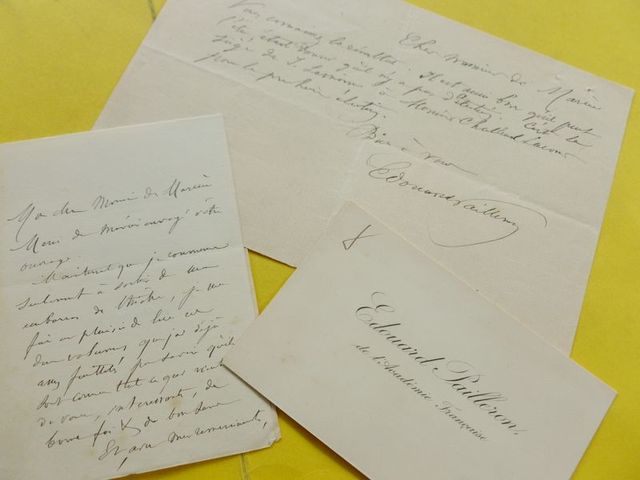 Cher Monsieur de Marcère
Vous connaissez le résultat. Il est aussi bon qu'il peut
l'être, étant donné qu'il n'y a pas d'élection. C'est le
siège de à Monsieur Challemel Lacour
pour la prochaine élection.
Bien à vous
Edouard Pailleron
Mon cher Monsieur de Marcère
Merci de m'avoir envoyé votre
ouvrage.
Maintenant que je commence
seulement à sortir de mes
embarras de théâtre, je me
fais un plaisir de lire ces
deux volumes que j'ai déjà
assez feuilletés pour savoir qu'ils
sont comme tout ce qui vient
de vous, intéressants, de
bonne foi & de bon
Et avec mes remerciements,
Edouard Pailleron
de l'Académie Française